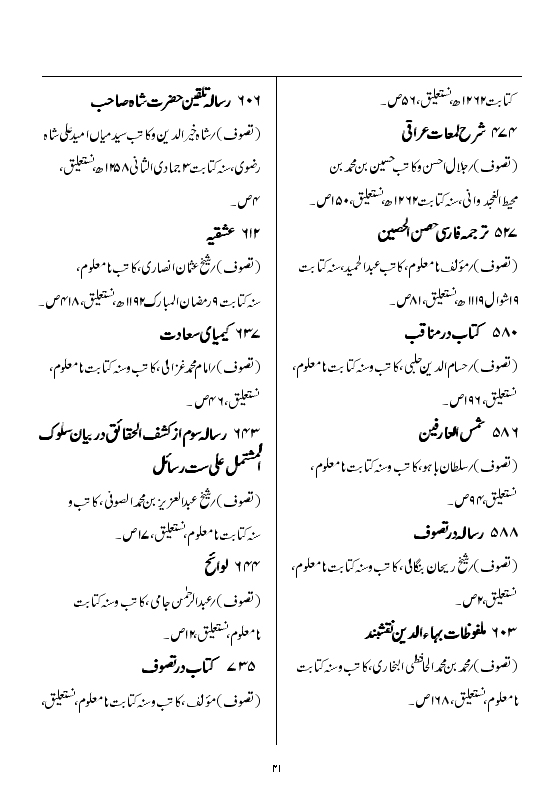 کتابت ۱۲۶۲ھ، نستعلیق، ۵۶ص۔
۴۷۴ شرح لمعات عراقی
(تصوف)/جلال احسن و کاتب حسین بن محمد بن
محیط الغجدوانی، سنہ کتابت ۱۲۶۲ھ، نستعلیق، ۱۵۰ص۔
۵۲۷ ترجمہ فارسی حصن الحصین
(تصوف)/مؤلف نامعلوم، کاتب عبدالحمید، سنہ کتابت
۱۹شوال ۱۱۱۹ھ، نستعلیق، ۸۱ص۔
۵۸۰ کتاب در مناقب
(تصوف)/حسام الدین حلبی، کاتب و سنہ کتابت نامعلوم،
نستعلیق، ۱۹۶ص۔
۵۸۶ شمس العارفین
(تصوف)/سلطان باہو، کاتب و سنہ کتابت نامعلوم،
نستعلیق، ۹۴ص۔
۵۸۸ رسالہ در تصوف
(تصوف)/شیخ ریحان بنگالی، کاتب و سنہ کتابت نامعلوم،
نستعلیق، ۲ص۔
۶۰۳ ملفوظات بہاء الدین نقشبند
(تصوف)/محمد بن محمد الحافظی البخاری، کاتب و سنہ کتابت
نامعلوم، نستعلیق، ۱۶۸ص۔
۶۰۶ رسالہ تلقین حضرت شاہ صاحب
(تصوف)/شاہ خیر الدین و کاتب سید میاں امید علی شاہ
رضوی، سنہ کتابت ۲ جمادی الثانی ۱۲۵۸ھ، نستعلیق،
۴ص۔
۶۱۲ عشقیہ
(تصوف)/شیخ عثمان انصاری، کاتب نامعلوم،
سنہ کتابت ۹ رمضان المبارک ۱۱۹۲ھ، نستعلیق، ۴۱۸ص۔
۶۳۷ کیمیای سعادت
(تصوف)/امام محمد غزالی، کاتب و سنہ کتابت نامعلوم،
نستعلیق، ۴۶ص۔
۶۴۳ رسالہ سوم از کشف الحقائق در بیان سلوک
المشتمل علی ست رسائل
(تصوف)/شیخ عبدالعزیز بن محمد الصوفی، کاتب و
سنہ کتابت نامعلوم، نستعلیق، ۱۷ص۔
۶۴۴ لوائح
(تصوف)/عبدالرحمٰن جامی، کاتب و سنہ کتابت
نامعلوم، نستعلیق، ۱۲ص۔
۷۳۵ کتاب در تصوف
(تصوف)/مؤلف، کاتب و سنہ کتابت نامعلوم، نستعلیق،
۳۱